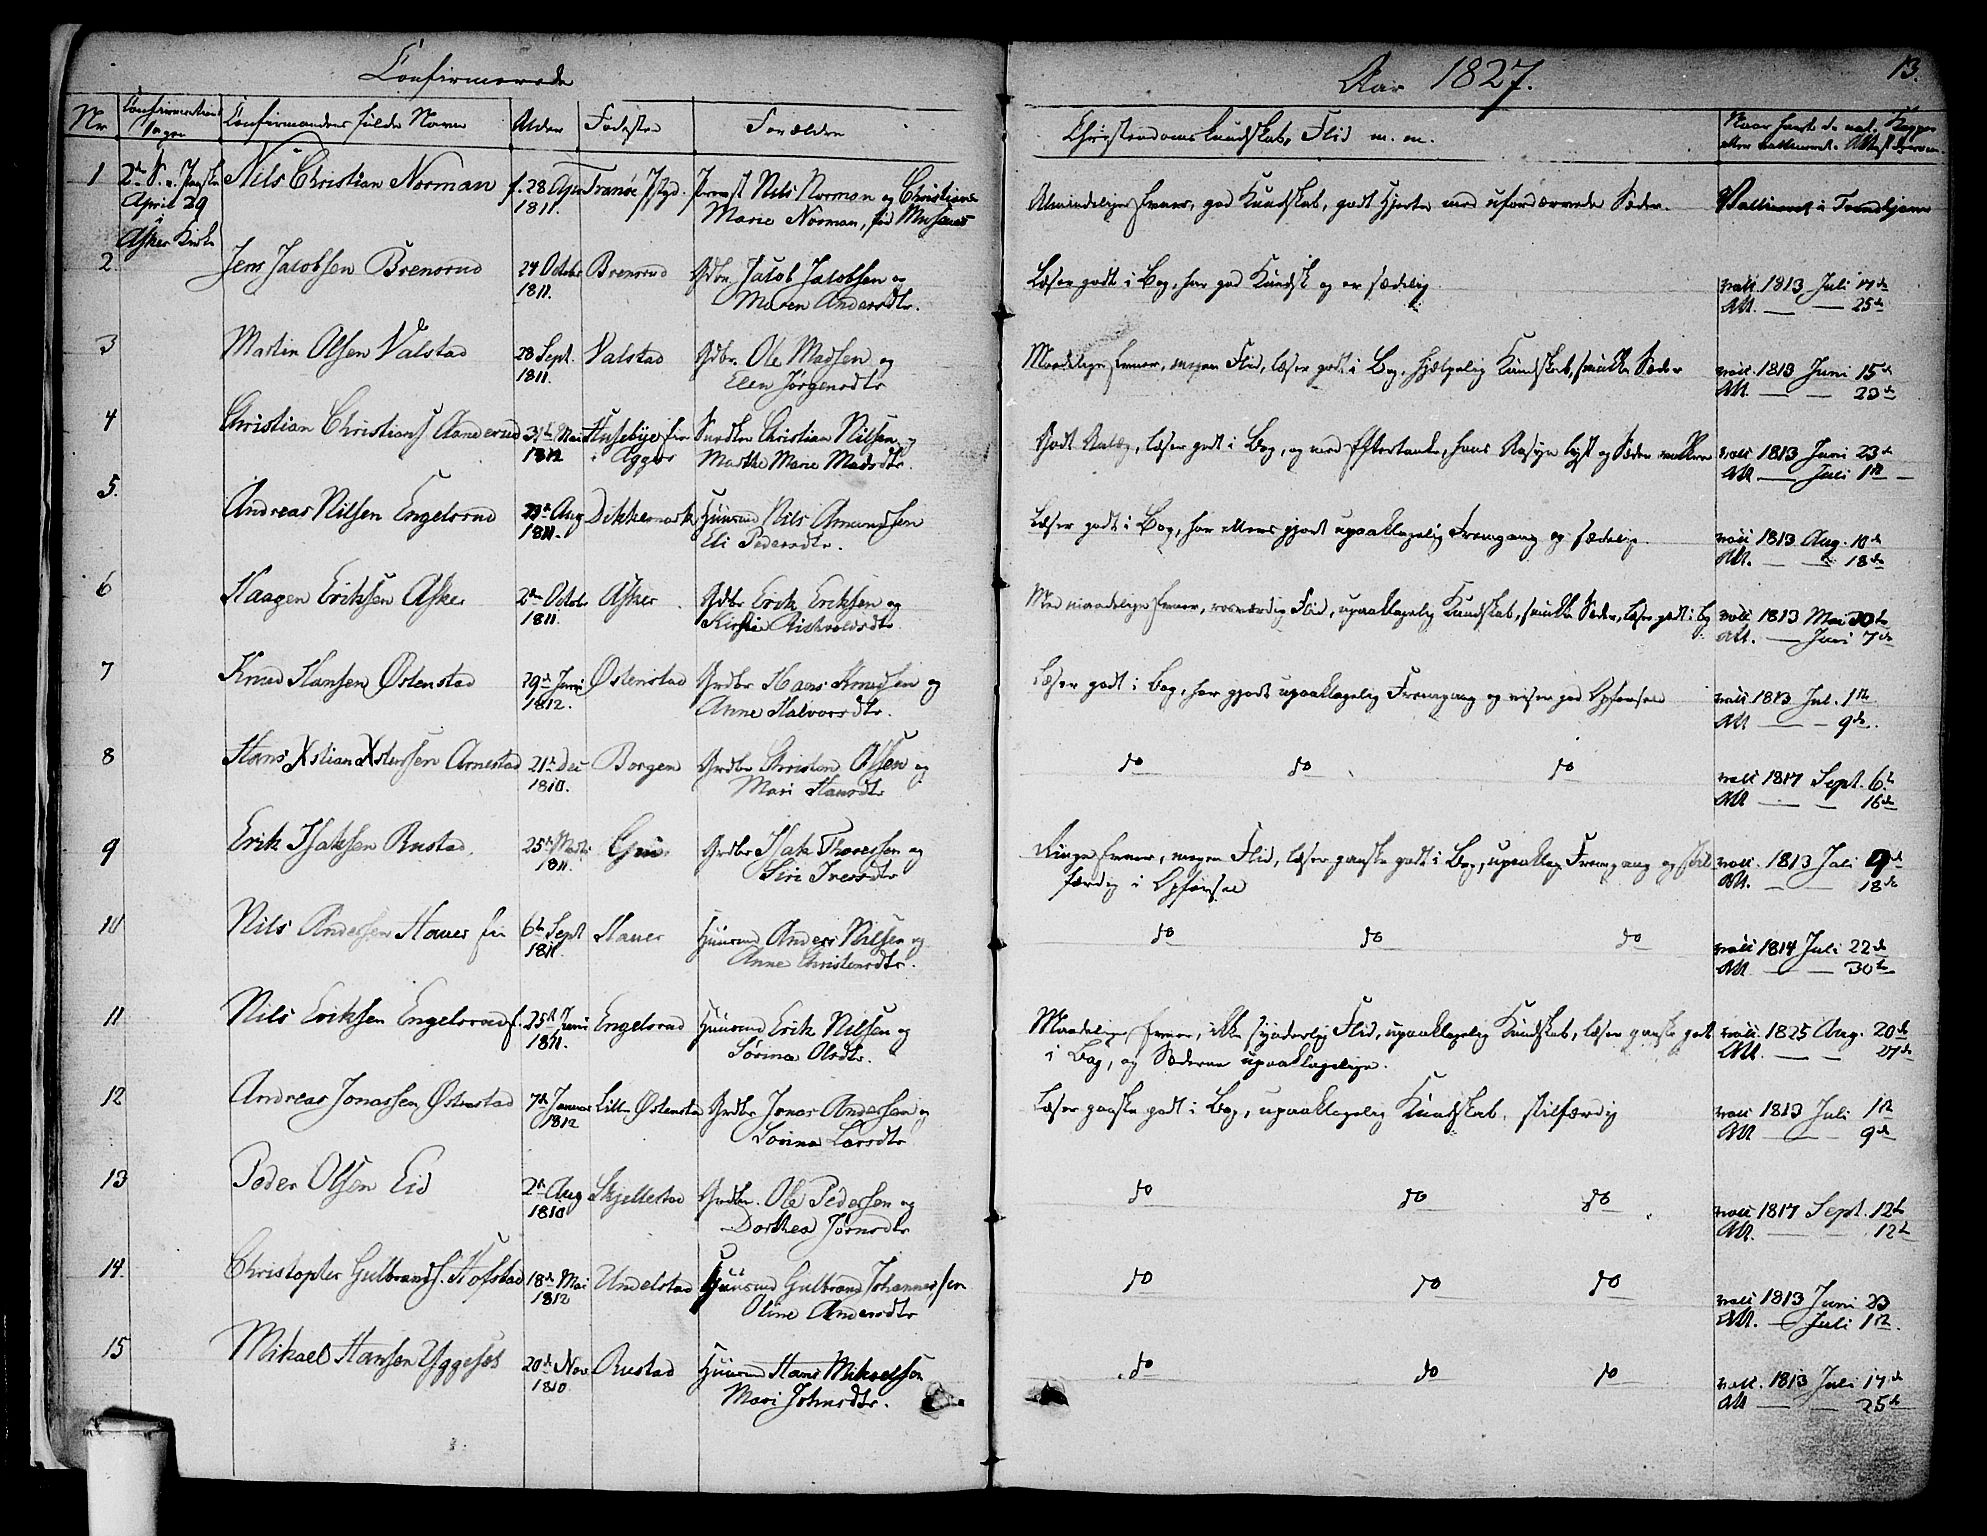 Confirmerede
Aar 1827.
13.
Nr
Confirmandens fulde Navn
Alder
Fødested
Forældre
Christendoms Kundskab, Flid m. m.
1
2den S. e. Paaske
April 29
Asker Kirke
Nils Christian Norman
f. 28 Apr
1811.
Tranøe
Provst Nils Norman og Christiane
Marie Norman, fød
Almindelige Evner, god Kundskab, godt Hjerte med ufordærvede Sæder.
Vaccineret i Trondhjem
2.
Jens Jacobsen Brensrud
24 Octobr
1811.
Brensrud
Gdbr. Jacob Jacobsen og
Maren Andersdtr.
Læser godt i Bog, har god Kundsk og er sædelig
vacc. 1813 Juli 17de
Att. — — 25de
3
Martin Olsen Valstad
28 Sept.
1811.
Valstad
Gdbr. Ole Madsen og
Elen Jørgensdtr
Maadelige Evner, megen Flid, læser godt i Bog, hjælpelig Kundskab, smukke Sæder
vacc. 1813 Juni 15de
Att. — — 23de
4
Christian Christians Aanderud
31te Mai
1812
Husebye
i Agger
Christian Nilsen og
Marthe Marie Madsdtr.
Godt Anlæg, læser godt i Bog, og med Eftertanke, hans og Sæder
vacc. 1813 Juni 23de
Att. — Juli 1ste
5.
Andreas Nilsen Engelsrud
Aug
1811.
Dikkemark
Huusmd Nils Amundsen
Eli Pedersdtr.
Læser godt i Bog, har ellers gjort upaaklagelig Fremgang og sædelig.
vacc. 1813 Aug. 10de
Att. — — 18de
6
Haagen Eriksen Asker
2den Octobr
1811.
Asker
Gdbr Erik Eriksen og
Kirstie
Med maadelige Evner, roesværdig Flid, upaaklagelig Kundskab, smukke Sæder, læser godt i Bog
vacc. 1813 Mai 30te
Att. — Juni 7de
7
Knud Hansen Østenstad
29de Juni
1812.
Østenstad
Grdbr Hans Knudsen og
Anne Halvorsdtr.
Læser godt i Bog, har gjort upaaklagelig Fremgang og viser god Opførsel
vacc. 1813 Jul. 1ste
Att. — — 9de.
8
Hans Xstian Xstensen Arnestad
21de Dec
1810.
Borgen
Grdbr Christen Olsen og
Mari Hansdtr
do do do
vacc 1817 Sept. 6te
Att — — 16de
9
Erik Isaksen Rustad.
25de Marts
1811.
Grdbr Isak Thoressen og
Siri Iversdtr
Ringe Evner, megen Flid, læser ganske godt i Bog, upaaklag. Fremgang og stil
færdig i Opførsel
vacc. 1813 Juli 9de
Att. — — 18de
10
Nils Andersen Hauer
6te Sept
1811.
Hauer
Huusmd Anders Nilsen og
Anne Christensdtr.
do do do
vacc 1814 Juli 22de
Att — — 30te
11
Nils Eriksen Engelsrud
25de Juni
1811.
Engelsrud
Huusmd Erik Nilsen og
Sørine Olsdtr.
Maadelige Evner, ikke synderlig Flid, upaaklagelig Kundskab, læser ganske godt
i Bog, og Sæderne upaaklagelige.
vacc. 1825 Aug. 20de
Att. — — 27de
12
Andreas Jonassen Østenstad
7de Januar
1812
Lille Østensta
Grdbr Jonas Andersen og
Sørine Larsdtr
Læser ganske godt i Bog, upaaklagelig Kundskab, stilfærdig
vacc. 1813 Juli 1ste
Att — — 9de
13
Peder Olsen Eid
2den Aug
1810
Skjellestad
Grdbr. Ole Pedersen og
Dorthea Jørnsdtr
do do do
vacc 1817 Sept. 12te
Att. — — 12te
14.
Christopher Gulbrands. Hofstad
18de Mai
1812
Undelstad
Huusmd Gulbrand Johannessen
Oline Andersdtr
do do do
vacc 1813 Juni 23
Att. — Juli 1ste.
15
Mikael Hansen Yggeset
20de Nov
1810.
Rustad
Huusmd Hans Mikaelsen
Mari Johnsdtr.
do do do
vacc. 1813 Juli 17de
Att — — 25de